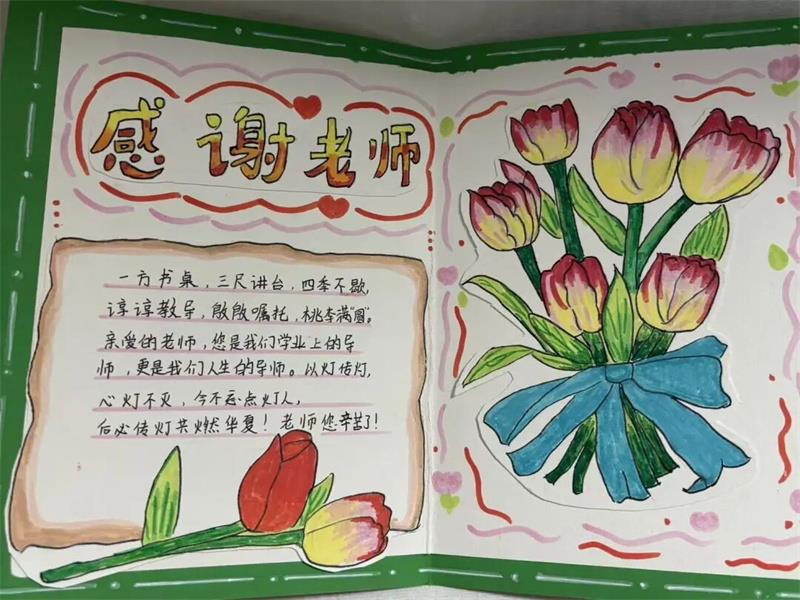 感谢老师
一方书桌，三尺讲台，四季不歇，
谆谆教导，殷殷嘱托，桃李满"园"。
亲爱的老师，您是我们学业上的导
师，更是我们人生的导师。以灯传灯，
心灯不灭，今不忘点灯人，
后必传灯共燃华夏！老师您辛苦了！